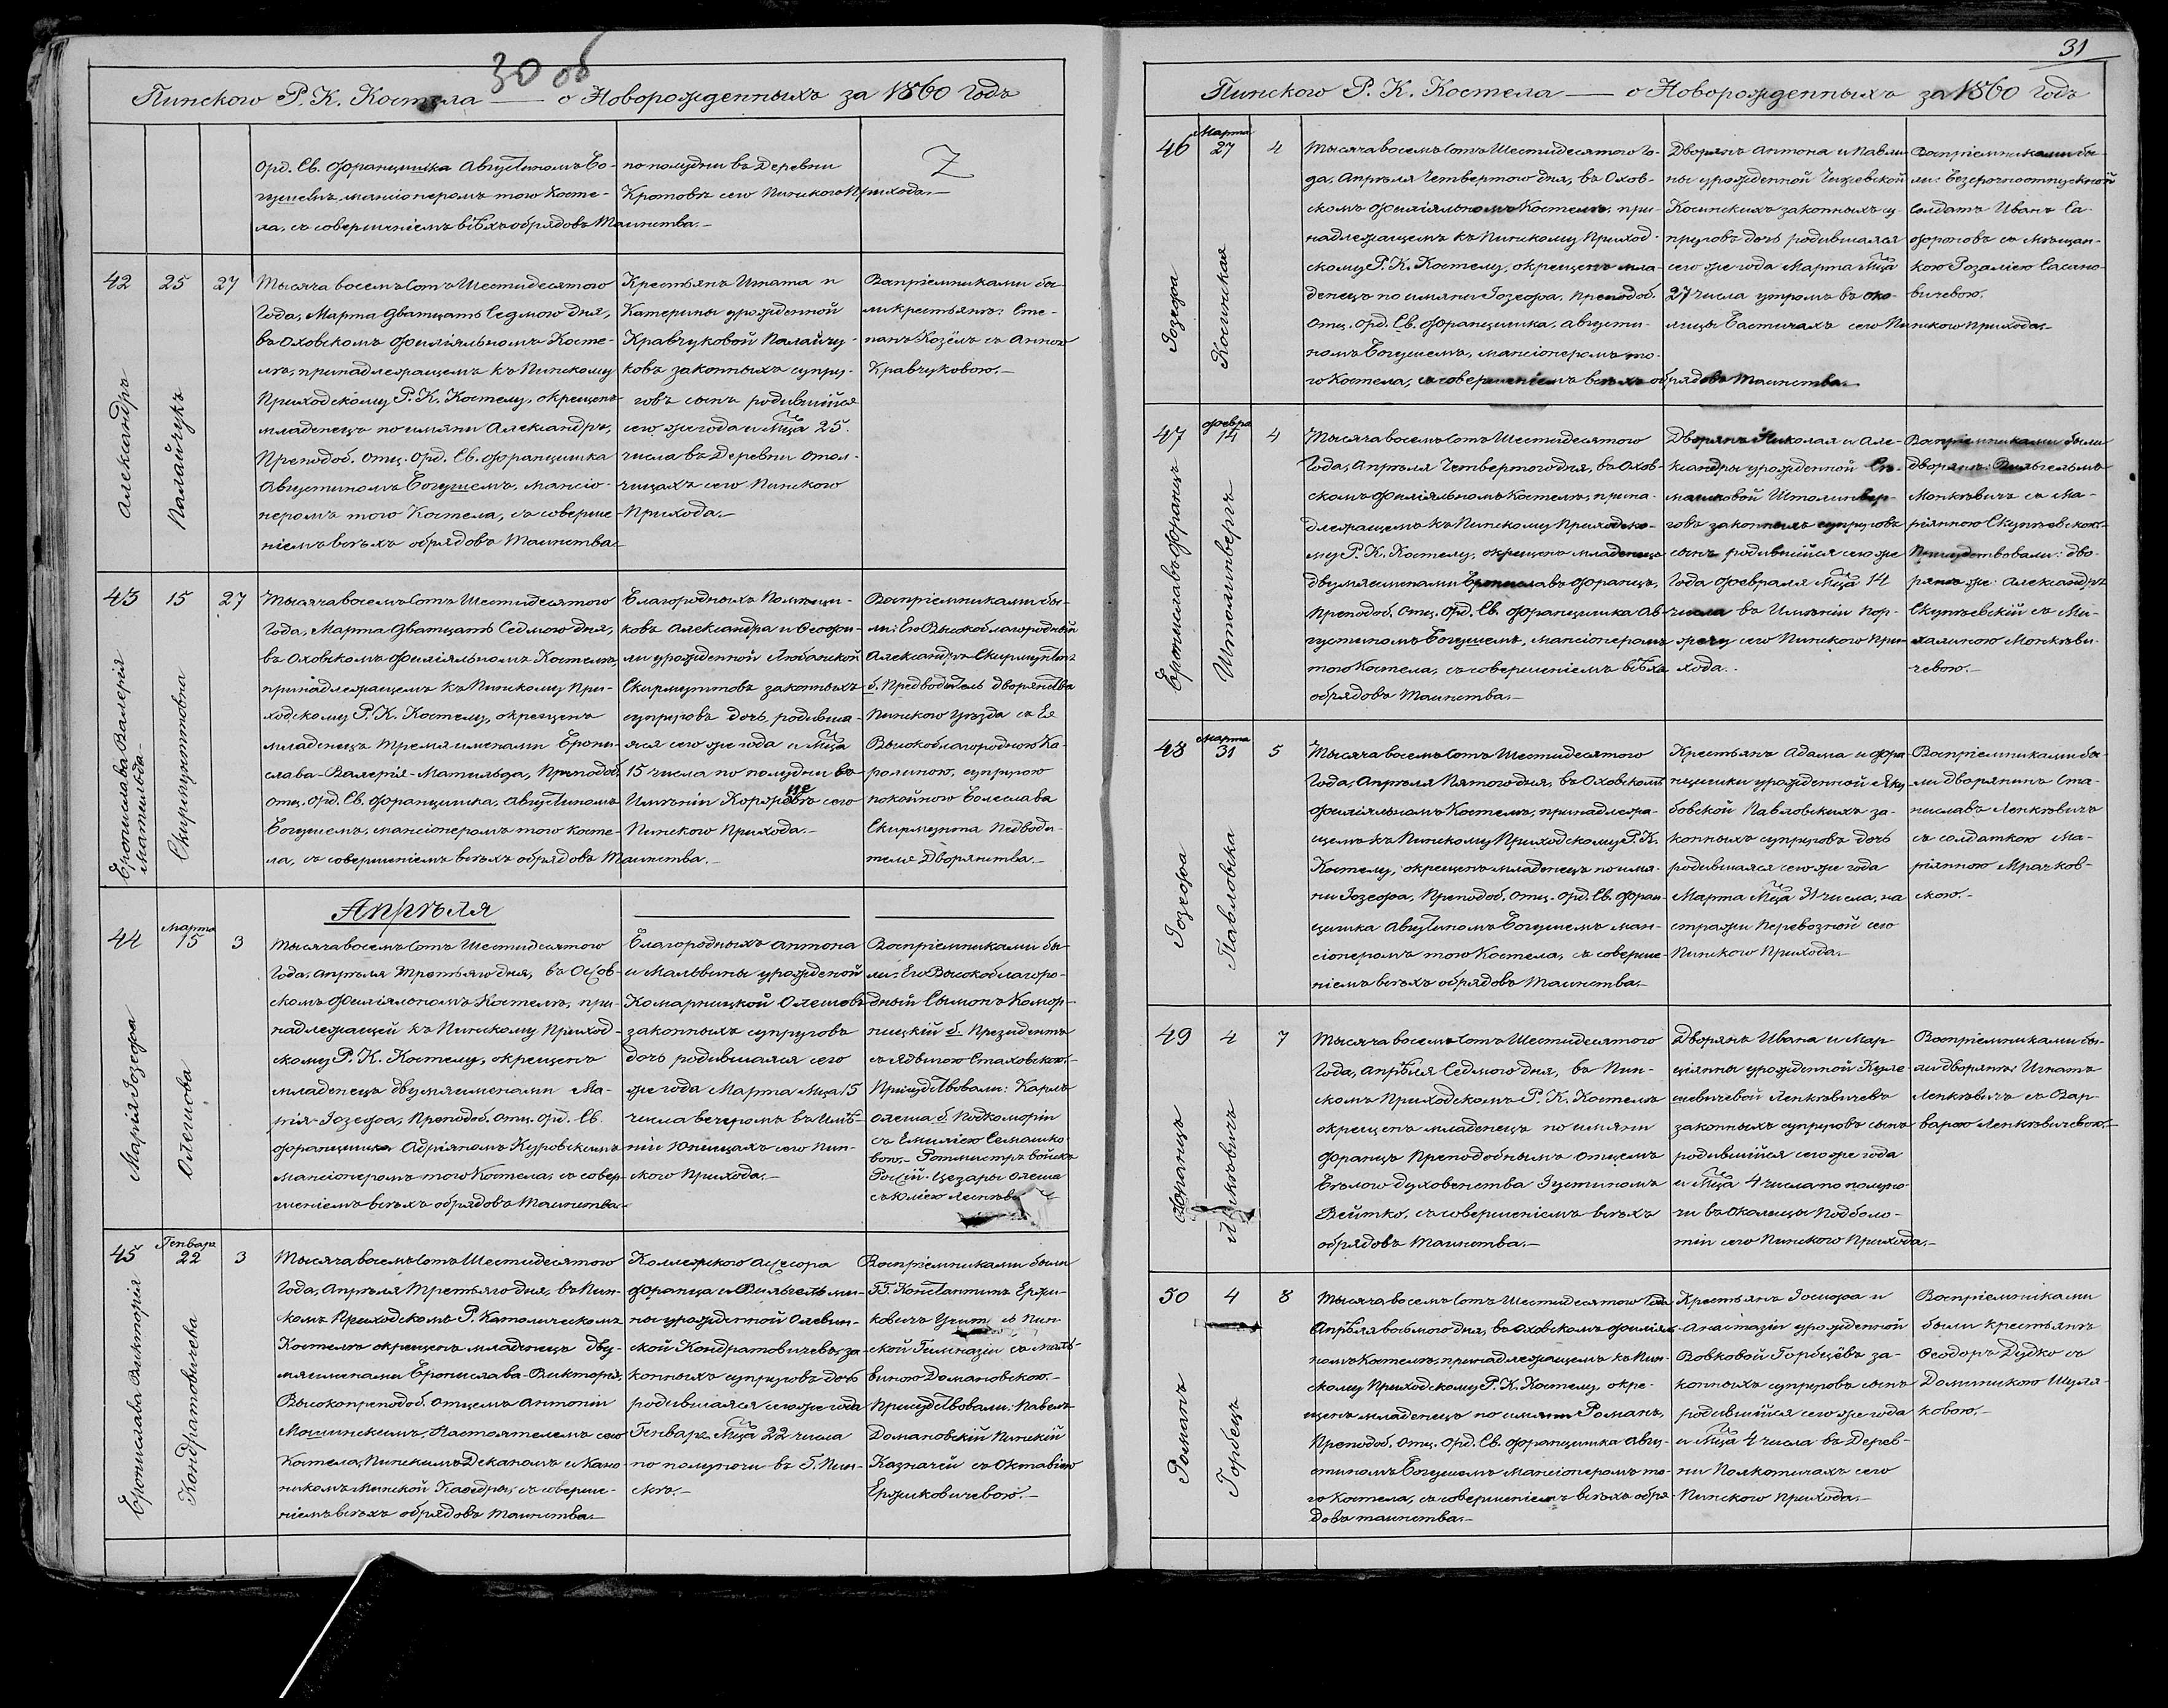 30 об
Пинского Р. К. Костела — о Новорожденныхъ за 1860 годъ
Орд. Св. Францишка Августиномъ Бо-
гушевъ, мансіонеромъ того Косте-
ла, съ совершеніемъ всѣхъ обрядовъ Таинства.—
по полудни въ Деревни
Кротовѣ сего Пинского Прихода.—
Z
42
25
27
Александръ
Палайчукъ
Тысяча восемъ Сотъ Шестидесятого
Года, Марта Дватцать Седмого дня,
въ Оховскомъ Филіяльномъ Косте-
лѣ, принадлежащемъ къ Пинскому
Приходскому Р. К. Костелу, окрещенъ
младенецъ по имяни Александръ,
Преподоб. Отц. Орд. Св. Францишка
Августиномъ Богушемъ, мансіо-
неромъ того Костела, съ соверше-
ніемъ всѣхъ обрядовъ Таинства.—
Крестьянъ Игната и
Катерины урожденной
Кравчуковой Палайчу-
ковъ законныхъ супру-
говъ сынъ родившійся
сего же года и Мца 25.
числа въ Деревни Отол-
чицахъ сего Пинского
Прихода.—
Воспріемниками бы-
ли крестьянъ: Сте-
панъ Козёлъ съ Анною
Кравчуковою.—
43
15
27
Бронислава-Валерія
Матильда-
Скирмунтовна
Тысяча восемъ Сотъ Шестидесятого
Года, Марта Дватцать Седмого дня,
въ Оховскомъ Филіяльномъ Костелѣ,
принадлежащемъ къ Пинскому При-
ходскому Р. К. Костелу, окрещенъ
младенецъ тремя именами Брони-
слава-Валерія-Матильда, Преподоб.
Отц. Орд. Св. Францишка, Августиномъ
Богушемъ, мансіонеромъ того Косте-
ла, съ совершеніемъ всѣхъ обрядовъ Таинства.—
Благородныхъ Помѣщи-
ковъ Александра и Феофи-
ли урожденной Любанской
Скирмунтовъ законныхъ
супруговъ дочь, родивша-
яся сего же года и Мца
15 числа по полудни въ
Имѣніи сего
Пинского Прихода.—
Воспріемниками бы-
ли: Его Высокоблагородный
Александръ Скирмунтъ
б. Предводитель Дворянства
Пинского Уѣзда съ Ея
Высокоблагородною Ка-
ролиною, супругою
покойного Болеслава
Скирмунта Педводи-
теля Дворянства.—
Апрѣля
44
Марта
15
3
Марія Іозефа
Олешова
Тысяча восемъ Сотъ Шестидесятого
Года, Апрѣля Третьяго дня, въ Охов-
скомъ Филіяльномъ Костелѣ, при-
надлежащей къ Пинскому Приход-
скому Р. К. Костелу, окрещенъ
младенецъ двумя именами Ма-
рія-Іозефа, Преподоб. Отц. Орд. Св.
Францишка Адріяномъ Куровскимъ
мансіонеромъ того Костела, съ совер-
шеніемъ всѣхъ обрядовъ Таинства.—
Благородныхъ Антона
и Мальвины урожденой
Комарницкой Олешовъ
законныхъ супруговъ
дочь родившаяся сего
же года Марта Мца 15
числа вечеромъ въ Имѣ-
ніи Юницахъ сего Пин-
ского Прихода.—
Воспріемниками бы-
ли: Его Высокоблагоро-
дный Сымонъ Комор-
ницкій б. Президентъ
съ Ядвигою Стаховскою.—
Присудствовали: Карлъ
Олеша б. Подкоморіи
съ Емилією Семашко-
вою.— Ротмистръ войскъ
Россій. Цезарь Олеша
съ Юлією
45
Генваря
22
3
Бронислава Викторія
Кондратовичева
Тысяча восемъ Сотъ Шестидесятого
Года, Апрѣля Третьяго дня, въ Пин-
скомъ Приходскомъ Р. Католическомъ
Костелѣ окрещенъ младенецъ дву-
мя именами Бронислава-Викторія,
Высокопреподоб. отцемъ Антоніи
Мошинскимъ, Настоятелемъ сего
Костела, Пинскимъ Деканомъ и Кано-
никомъ Минской Кафедры, съ соверше-
ніемъ всѣхъ обрядовъ Таинства.—
Коллежского Ассесора
Франца и Вильгельми-
ны урожденной Олевин-
ской Кондратовичевъ, за-
конныхъ супруговъ дочь
родившаяся сего же года
Генваря Мца 22 числа
по полуночи въ Г. Пин-
скѣ.—
Воспріемниками были
ГГ. Константинъ Ержи-
ковичъ Учит. въ Пин-
ской Гимназіи съ Маль-
виною Домановскою.—
Присудствовали: Павелъ
Домановскій Пинскій
Казначей съ Октавією
Ержиковичевою.—
31
Пинского Р. К. Костела — о Новорожденныхъ за 1860 годъ
46
Марта
27
4
Іозефа
Косинская
Тысяча восемъ Сотъ Шестидесятого Го-
да, Апрѣля Четвертого дня, въ Охов-
скомъ Филіяльномъ Костелѣ, при-
надлежащемъ къ Пинскому Приход-
скому Р. К. Костелу, окрещенъ мла-
денецъ по имяни Іозефа, Преподоб.
Отц. Орд. Св. Францишка, Августи-
номъ Богушемъ, мансіонеромъ то-
го Костела, съ совершеніемъ всѣхъ обрядовъ Таинства.—
Дворянъ Антона и Павли-
ны урожденной Чижевской
Косинскихъ законныхъ су-
пруговъ дочь родившаяся
сего же года Марта Мца
27 числа утромъ въ око-
лицы Бастичахъ сего Пинского Прихода.—
Воспріемниками бы-
ли: Безсрочноотпускной
Солдатъ Иванъ Са-
фроновъ съ Мѣщан-
кою Розалією Сасино-
вичевою.
47
Февра
14
4
Брониславъ Францъ
Штолинвергъ
Тысяча восемъ Сотъ Шестидесятого
Года, Апрѣля Четвертого дня, въ Охов-
скомъ Филіяльномъ Костелѣ, прина-
длежащемъ къ Пинскому Приходско-
му Р. К. Костелу, окрещенъ младенецъ
двумя именами Брониславъ Францъ,
Преподоб. Отц. Орд. Св. Францишка Ав-
густиномъ Богушемъ, мансіонеромъ
того Костела, съ совершеніемъ всѣхъ
обрядовъ Таинства.—
Дворянъ Николая и Але-
ксандры урожденной
Штолинвер-
говъ законныхъ супруговъ
сынъ родившійся сего же
Года Февраля Мца 14
числа въ Имѣніи Пор-
сего Пинского При-
хода.—
Воспріемниками были
дворянъ: Вильгельмъ
Монкѣвичъ съ Ма-
ріянною Скупѣевскою.
Присудствовали: дво-
рянъ же: Александръ
Скупѣевскій съ Ми-
халиною Монкѣви-
чевою.—
48
Марта
31
5
Іозефа
Павловска
Тысяча восемъ Сотъ Шестидесятого
Года, Апрѣля Пятого дня, въ Оховскомъ
Филіяльномъ Костелѣ, принадлежа-
щемъ къ Пинскому Приходскому Р. К.
Костелу, окрещенъ младенецъ по имя-
ни Іозефа, Преподоб. Отц. Орд. Св. Фран-
цишка Августиномъ Богушемъ ман-
сіонеромъ того Костела, съ соверше-
ніемъ всѣхъ обрядовъ Таинства.—
Крестьянъ Адама и Фра-
нцишки урожденной Яку-
бовской Павловскихъ за-
конныхъ супруговъ дочь
родившаяся сего же года
Марта Мца 31 числа, на
стражи Перевозной сего
Пинского Прихода.—
Воспріемниками бы-
ли дворянинъ Ста-
ниславъ Ленкѣвичъ
съ солдаткою Ма-
ріянною Мрачков-
скою.—
49
4
7
Францъ
Ленкѣвичъ
Тысяча восемъ Сотъ Шестидесятого
Года, Апрѣля Седмого дня, въ Пин-
скомъ Приходскомъ Р. К. Костелѣ
окрещенъ младенецъ по имяни
Францъ Преподобнымъ отцемъ
Бѣлого духовенства Густиномъ
Вейтко, съ совершеніемъ всѣхъ
обрядовъ Таинства.—
Дворянъ Ивана и Мар-
ціянны урожденной Куле-
шевичевой Ленкѣвичевъ
законныхъ супруговъ сынъ
родившійся сего же года
и Мца 4 числа по полуно-
чи въ Околицы Подболо-
тіи сего Пинского Прихода.—
Воспріемниками бы-
ли дворянъ: Игнатъ
Ленкѣвичъ съ Вар-
варою Ленкѣвичевою.—
50
4
8
Романъ
Горбецъ
Тысяча восемъ Сотъ Шестидесятого Года
Апрѣля восьмого дня, въ Оховскомъ Филіял-
номъ Костелѣ, принадлежащемъ къ Пин-
скому Приходскому Р. К. Костелу, окре-
щенъ младенецъ по имяни Романъ,
Преподоб. Отц. Орд. Св. Францишка Авгу-
стиномъ Богушомъ мансіонеромъ то-
го Костела, съ совершеніемъ всѣхъ обря-
довъ таинства.—
Крестьянъ Іосифа и
Анастазіи урожденной
Вовковой Горбцёвъ за-
конныхъ супруговъ сынъ
родившійся сего же года
и Мца 4 числа въ Дерев-
ни Полкотичахъ сего
Пинского Прихода.—
Воспріемниками
были крестьянъ
Феодоръ Дудко съ
Доминикою Шуля-
ковою.—